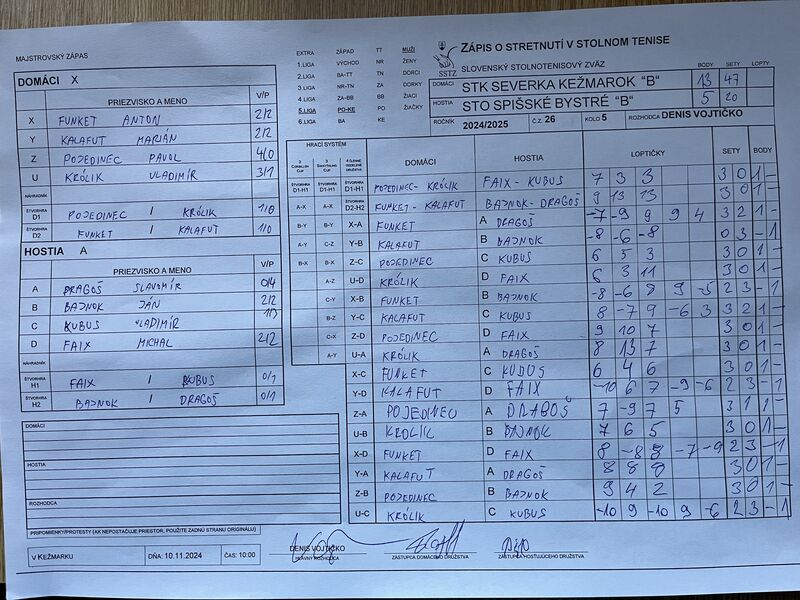 MAJSTROVSKÝ ZÁPAS
EXTRA ZÁPAD TT MUŽI
1.LIGA VÝCHOD NR ŽENY
2.LIGA BA-TT TN DORCI
3.LIGA NR-TN ZA DORKY
4.LIGA ZA-BB BB ŽIACI
5.LIGA PO-KE PO ŽIAČKY
6.LIGA BA KE
SSTZ
ZÁPIS O STRETNUTÍ V STOLNOM TENISE
SLOVENSKÝ STOLNOTENISOVÝ ZVÄZ BODY SETY LOPTY
DOMÁCI STK SEVERKA KEŽMAROK "B" 13 47
HOSTIA STO SPIŠSKÉ BYSTRÉ "B" 5 20
ROČNÍK 2024/2025 Č.Z. 26 KOLO 5 ROZHODCA DENIS VOJTIČKO
DOMÁCI X
PRIEZVISKO A MENO V/P
X FUNKET ANTON 2/2
Y KALAFUT MARIÁN 2/2
Z POJEDINEC PAVOL 4/0
U KRÓLIK VLADIMÍR 3/1
NÁHRADNÍK
ŠTVORHRA D1 POJEDINEC / KRÓLIK 1/0
ŠTVORHRA D2 FUNKET / KALAFUT 1/0
HOSTIA A
PRIEZVISKO A MENO V/P
A DRAGOŠ SLAVOMÍR 0/4
B BAJNOK JÁN 2/2
C KUBUS VLADIMÍR 1/3
D FAIX MICHAL 2/2
NÁHRADNÍK
ŠTVORHRA H1 FAIX / KUBUS 0/1
ŠTVORHRA H2 BAJNOK / DRAGOŠ 0/1
DOMÁCI
HOSTIA
ROZHODCA
PRIPOMIENKY/PROTESTY (AK NEPOSTAČUJE PRIESTOR, POUŽITE ZADNÚ STRANU ORIGINÁLU)
V KEŽMARKU DŇA: 10.11.2024 ČAS: 10:00
HRACÍ SYSTÉM
DOMÁCI HOSTIA LOPTIČKY SETY BODY
ŠTVORHRA D1-H1 ŠTVORHRA D1-H1 ŠTVORHRA D1-H1 POJEDINEC-KRÓLIK FAIX-KUBUS 7 3 3 3 0 1 -
A-X A-X ŠTVORHRA D2-H2 FUNKET-KALAFUT BAJNOK-DRAGOŠ 9 13 13 3 0 1 -
B-Y B-Y X-A FUNKET A DRAGOŠ -7 -9 9 9 4 3 2 1 -
A-Y C-Z Y-B KALAFUT B BAJNOK -8 -6 -8 0 3 - 1
B-X B-X Z-C POJEDINEC C KUBUS 6 5 3 3 0 1 -
A-Z U-D KRÓLIK D FAIX 6 3 11 3 0 1 -
C-Y X-B FUNKET B BAJNOK -8 -6 8 9 -5 2 3 - 1
B-Z Y-C KALAFUT C KUBUS 8 -7 9 -6 3 3 2 1 -
C-X Z-D POJEDINEC D FAIX 9 10 7 3 0 1 -
A-Y U-A KRÓLIK A DRAGOŠ 8 13 7 3 0 1 -
X-C FUNKET C KUDOS 6 4 6 3 0 1 -
Y-D KALAFUT D FAIX -10 6 7 -9 -6 2 3 - 1
Z-A POJEDINEC A DRAGOŠ 7 -9 7 5 3 1 1 -
U-B KROLIK B BAJNOK 7 6 5 3 0 1 -
X-D FUNKET D FAIX 8 -8 8 -7 -9 2 3 - 1
Y-A KALAFUT A DRAGOŠ 8 8 8 3 0 1 -
Z-B POJEDINEC B BAJNOK 9 4 2 3 0 1 -
U-C KRÓLIK C KUBUS -10 9 -10 9 -6 2 3 - 1
DENIS VOJTIČKO
HLAVNÝ ROZHODCA ZÁSTUPCA DOMÁCEHO DRUŽSTVA ZÁSTUPCA HOSŤUJÚCEHO DRUŽSTVA